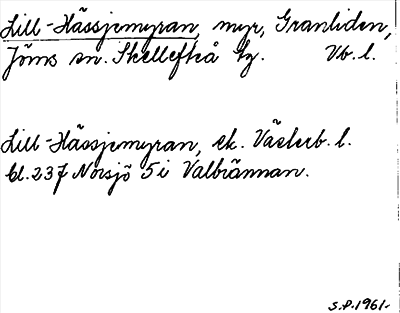 Lill-Hässjemyran, myr, Granliden,
Jörns sn. Skellefteå tg. Vb. l.
Lill-Hässjemyran, ek. Västerb. l.
bl. 237 Norsjö 5 i Valbrännan.
S.P. 1961.